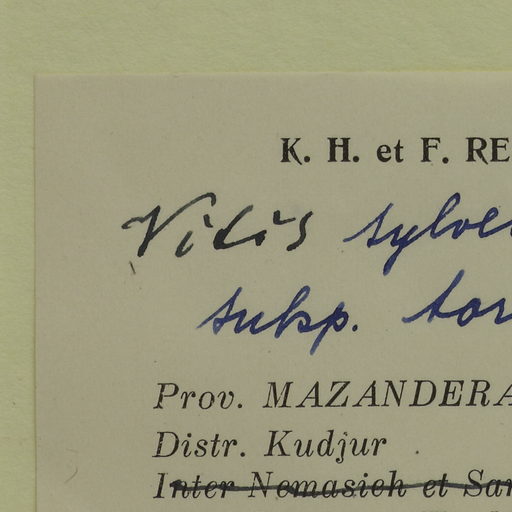 K. H. et F. RE
Vitis sylve
subsp. tor
Prov. MAZANDERA
Distr. Kudjur
Inter Nemasieh et San